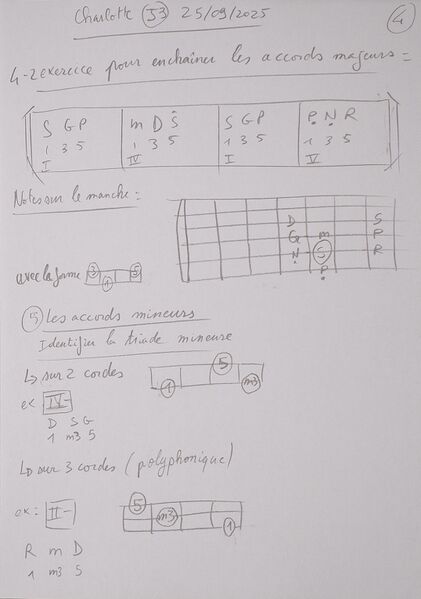 Charlotte J3 25/09/2025
4
4-2 exercice pour enchaîner les accords majeurs =
S G P m D S S G P P N R
1 3 5 1 3 5 1 3 5 1 3 5
I IV I V
Notes sur le manche =
D S
G m P
N S R
P
avec la forme 3 1 5
5 Les accords mineurs
Identifier la triade mineure
↳ sur 2 cordes
5
1 m3
ex IV-
D S G
1 m3 5
↳ sur 3 cordes (polyphonique)
5
ex : II- m3
1
R m D
1 m3 5